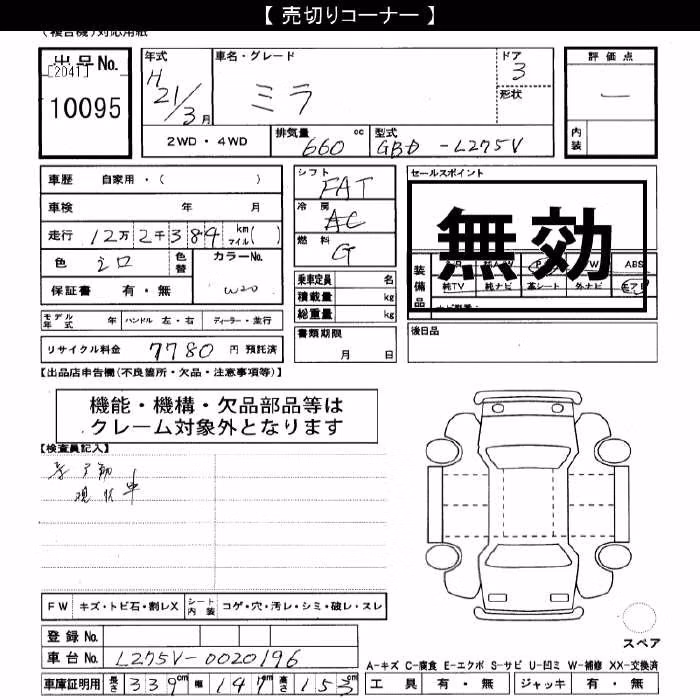 【 売切りコーナー 】
(複合機)対応用紙
出品No.
[2041]
10095
年式
H 21/3 月
車名・グレード
ミラ
ドア
3
形状
評価点
一
内装
2WD・4WD
排気量
660 cc
型式
GBD-L275V
車歴 自家用・( )
車検 年 月
走行 12万2千384 km マイル( )
色 シロ
色替
カラーNo.
W20
保証書 有・無
モデル年式 年 ハンドル 左・右 ディーラー・並行
リサイクル料金 7780 円 預託済
シフト
FAT
冷房
AC
燃料
G
乗車定員 名
積載量 kg
総重量 kg
書類期限
月 日
セールスポイント
無効
装備品
ABS
純TV 純ナビ 革シート 外ナビ エアB
後日品
【出品店申告欄(不良箇所・欠品・注意事項等)】
機能・機構・欠品部品等は
クレーム対象外となります
【検査員記入】
現状車
FW キズ・トビ石・割レX シート内装 コゲ・穴・汚レ・シミ・破レ・スレ
登録 No.
車台 No. L275V-0020196
車庫証明用 長さ 339cm 幅 147cm 高さ 153cm
スペア
A-キズ C-腐食 E-エクボ S-サビ U-凹ミ W-補修 XX-交換済
工具 有・無 ジャッキ 有・無